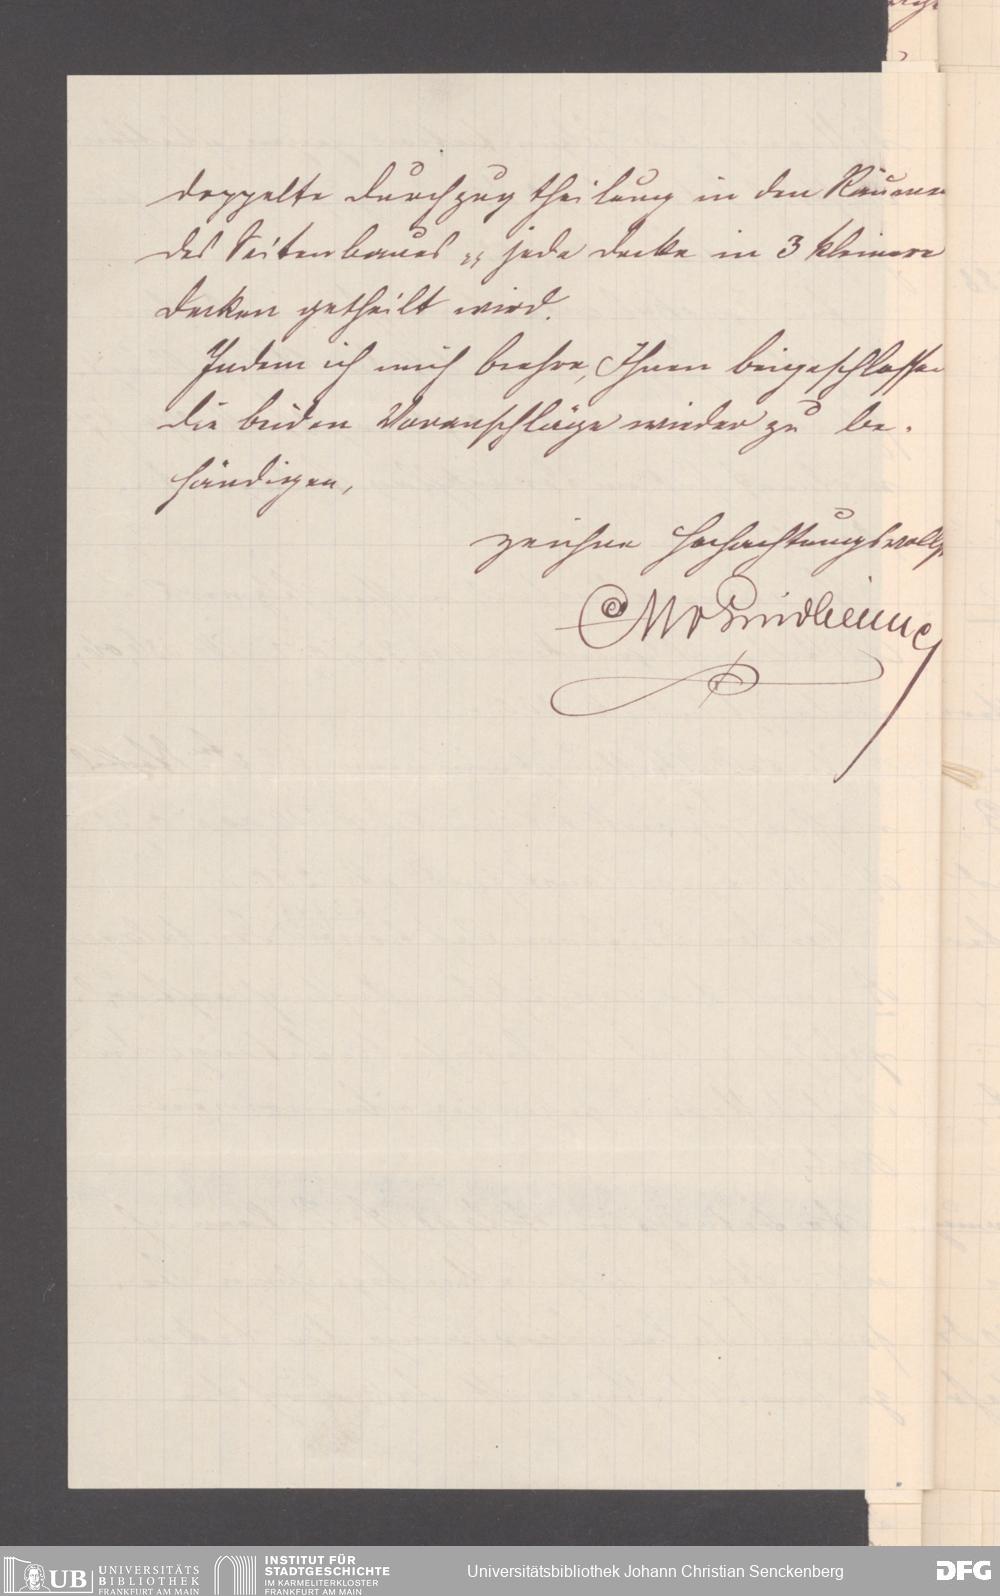 doppelte Durchzug theilung in den Räumen
des Seitenbaues „ jede Decke in 3 kleinere
Decken getheilt wird.
Indem ich mich beehre, Ihnen beigeschlossen
die beiden Voranschläge wieder zu be-
händigen,
zeichne Hochachtungsvollst
UB
UNIVERSITÄTS
BIBLIOTHEK
FRANKFURT AM MAIN
INSTITUT FÜR
STADTGESCHICHTE
IM KARMELITERKLOSTER
FRANKFURT AM MAIN
Universitätsbibliothek Johann Christian Senckenberg
DFG